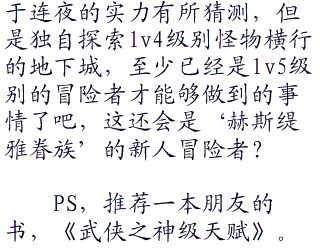 于连夜的实力有所猜测，但
是独自探索lv4级别怪物横行
的地下城，至少已经是lv5级
别的冒险者才能够做到的事
情了吧，这还会是‘赫斯缇
雅眷族’的新人冒险者？
PS，推荐一本朋友的
书，《武侠之神级天赋》。